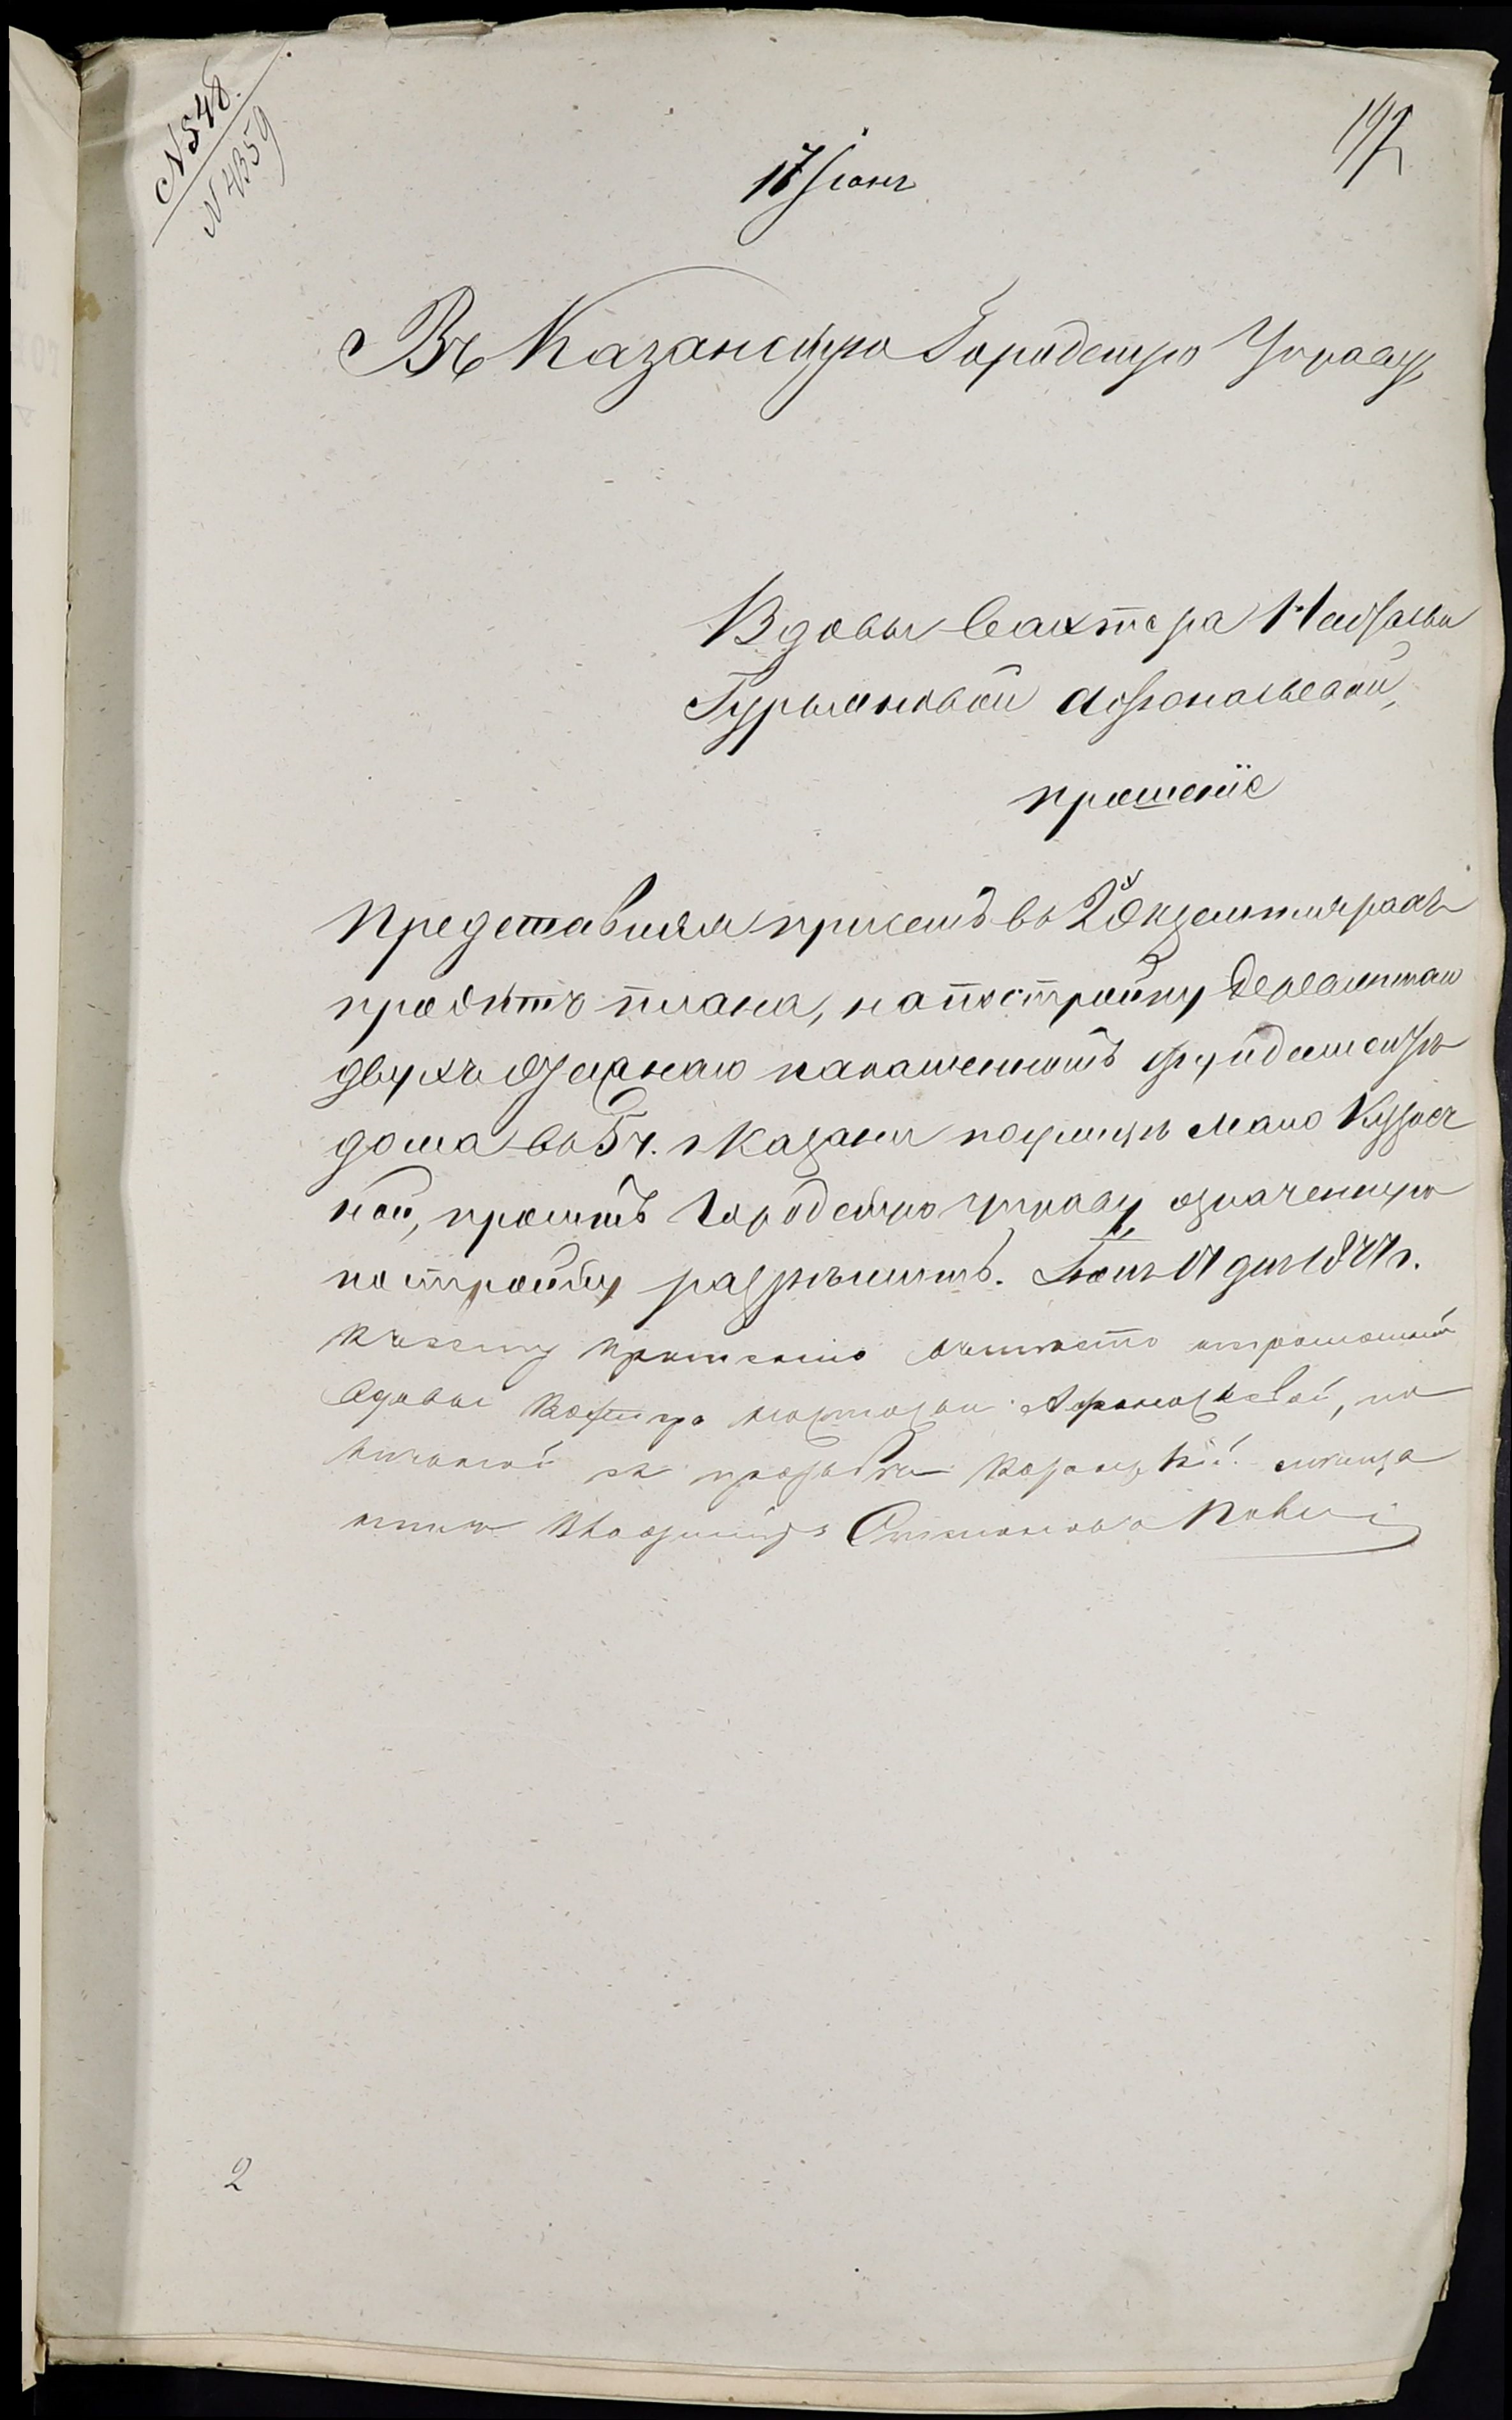 N 548.
N 4359
192
17 Іюня
Въ Казанскую Городскую Управу
Вдовы вахтера Натальи
Гурьяновой Афонасьевой,
прошеніе
Представляя присемъ въ 2х экземплярахъ
проэктъ плана, на постройку деревяннаго
двухъ этажнаго на каменномъ фундаментѣ
дома въ 5 ч. г Казани по улицѣ Мало Кузнеч
ной, просить Городскую управу означенную
постройку разрѣшить. Іюня 17 дня 1877 г.
Къ сему прошенію вмѣсто неграмотной
вдовы Вахтера Натальи Афонасьевой, по
личной ея просьбѣ Казанскій мѣща
нинъ Степановъ
2